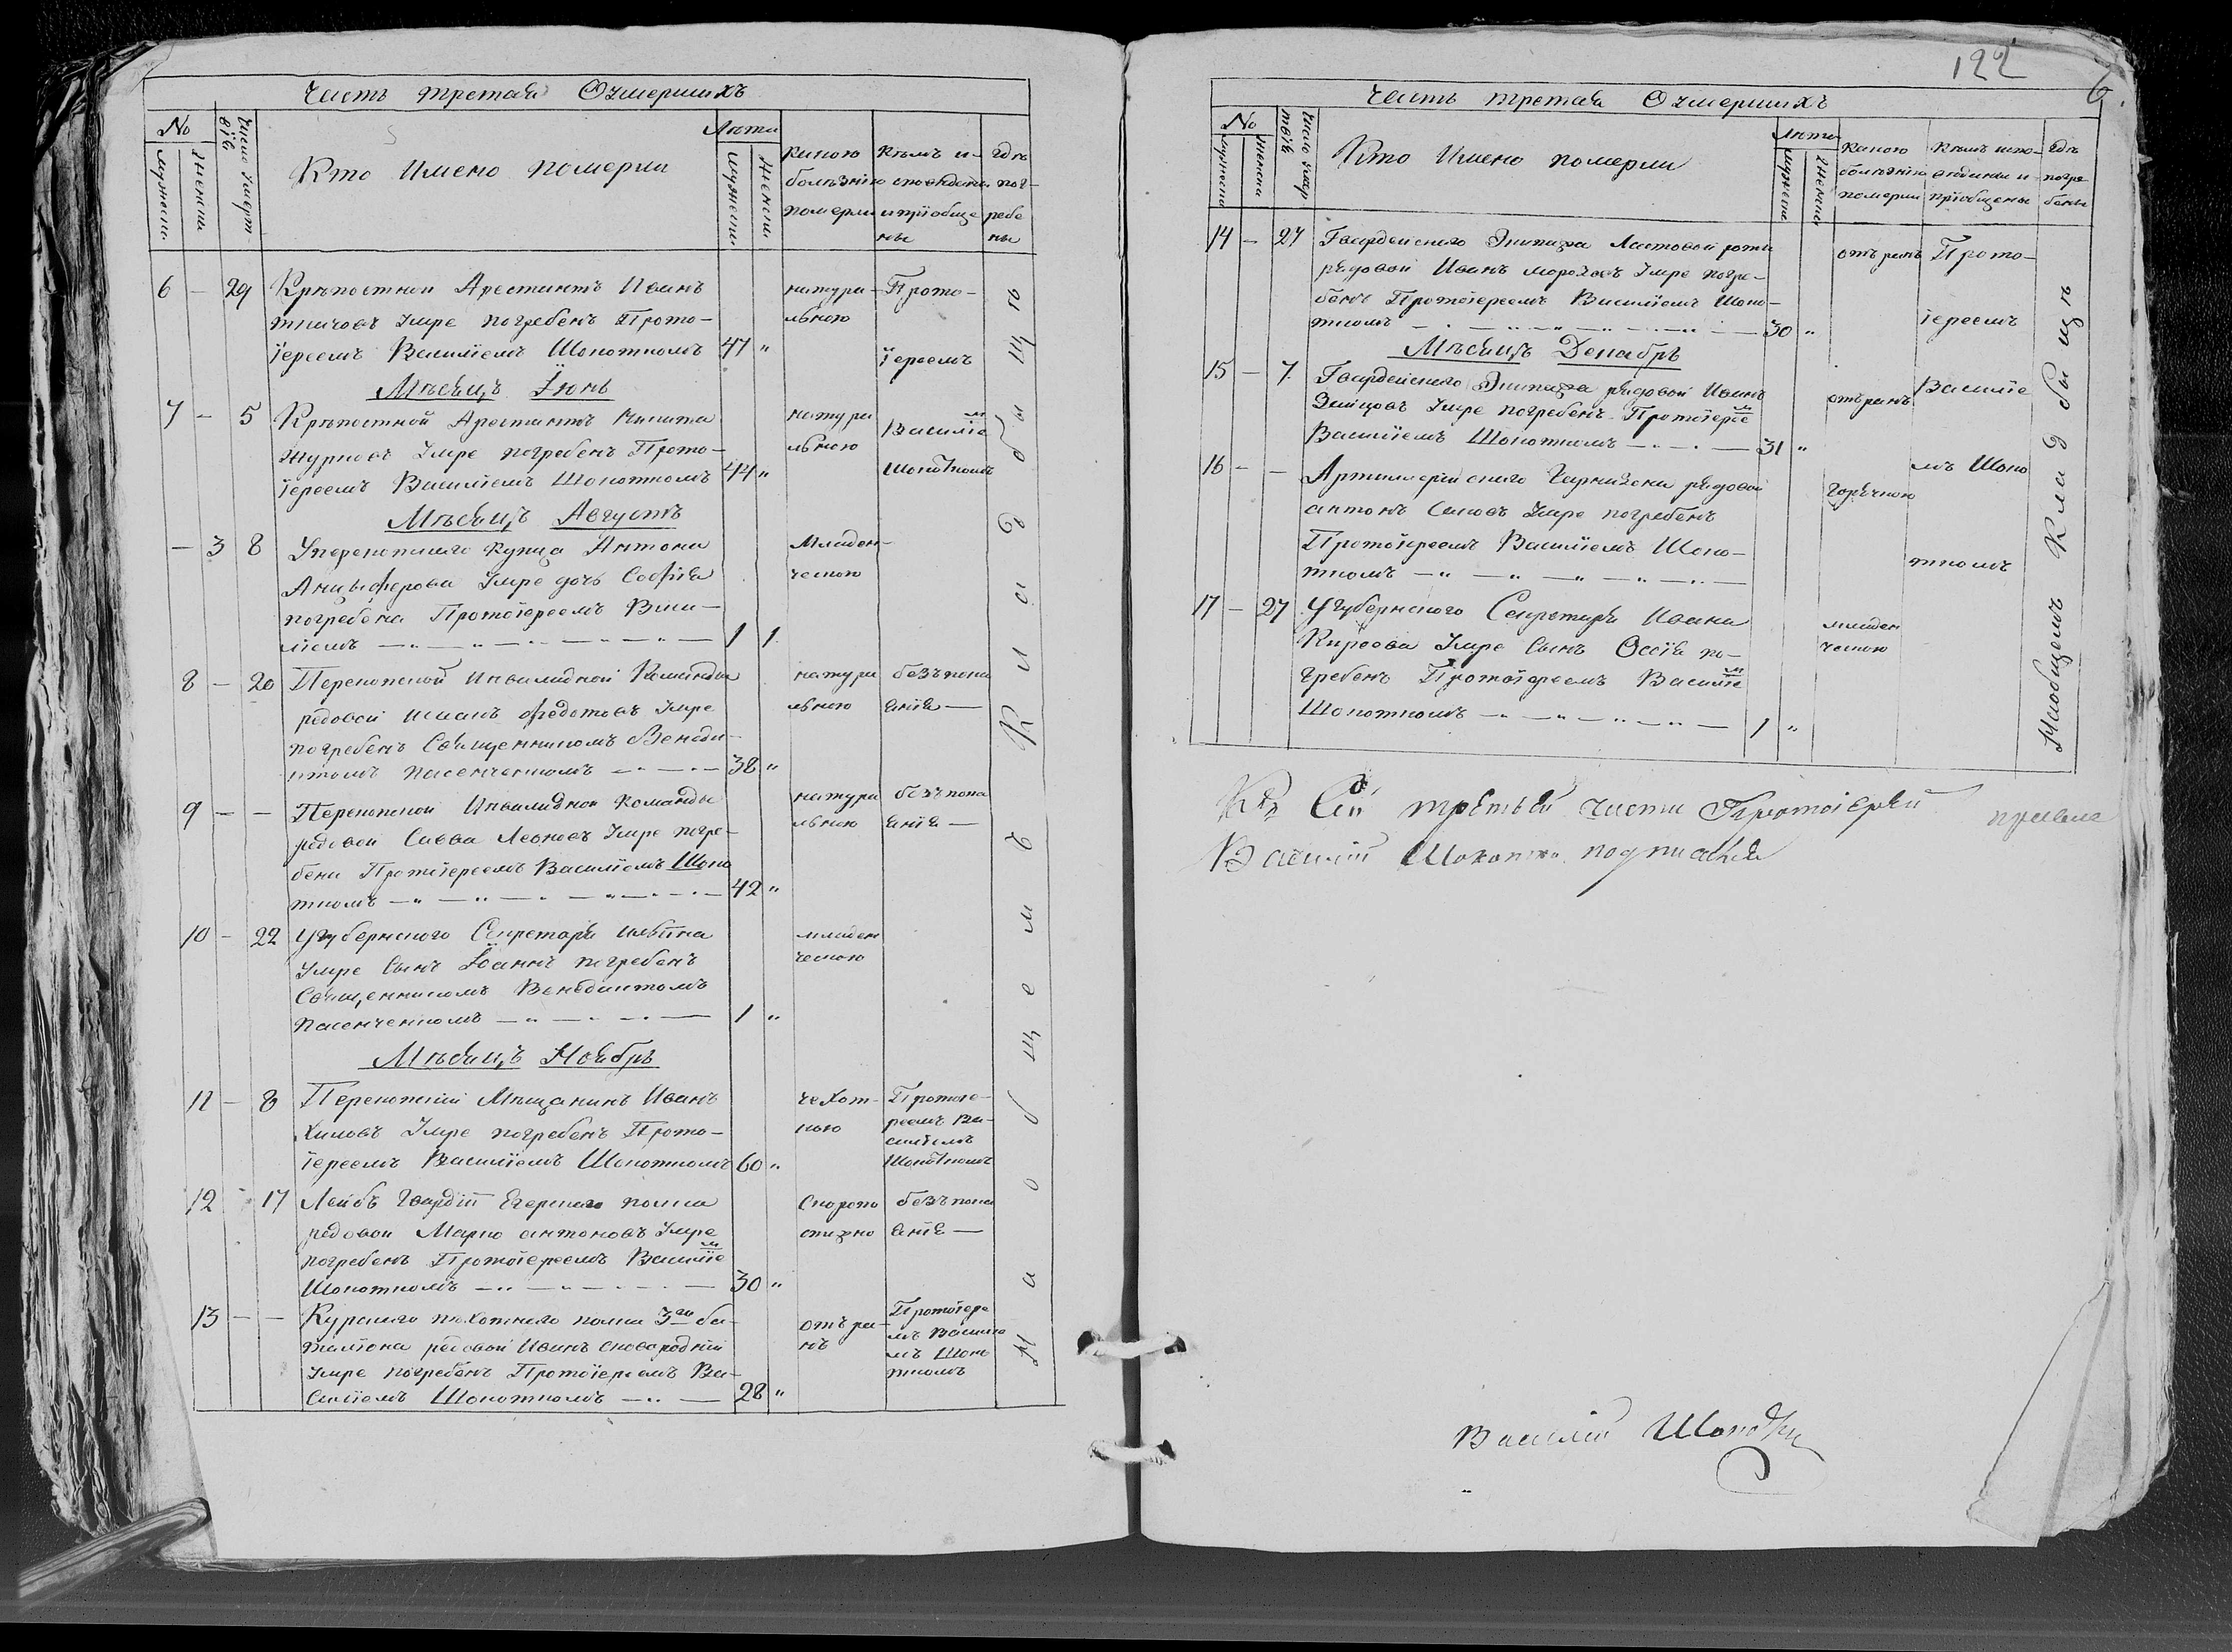 Часть третая О умершихъ
No
Число умерт
вiй
Кто Имено померли
Лѣта
Какою
болѣзнiю
померли
Кѣмъ и-
споведаны
и прiобще
ны
гдѣ
пог-
ребе
ны
мужеска
женска
мужеска
женска
6 — 29 Крѣпостной Арестантъ Иванъ
умре погребенъ Прото-
iереемъ Василiемъ Шокоткомъ 47 "
натура-
льною
Прото-
iереемъ
Мѣсяцъ Iюнь
7 — 5 Крѣпостной Арестантъ Никита
Журковъ умре погребенъ Прото-
iереемъ Василiемъ Шокоткомъ 44 "
натура
льною
Василiе м
Шокоткомъ
Мѣсяцъ Августъ
— 3 8 Уперекопскаго купца Антона
Анцыферова умре дочь Софiя
погребена Протоiереемъ Васи-
лiемъ 1 1
Младен-
ческою
8 — 20 Перекопской Инвалидной Команды
редовой Федотовъ умре
погребенъ Священникомъ Венеди-
ктомъ Пасенченкомъ 38 "
натура
льною
безъ пока
янiя —
9 — — Перекопской Инвалидной Команды
редовой Савва Леоновъ умре погре-
бенъ Протоiереемъ Василiемъ Шоко
ткомъ 42 "
натура
льною
безъ пока
янiя —
10 — 22 Угубернского Секретаря
умре сынъ Iоаннъ погребенъ
Священникомъ Венедиктомъ
Пасенченкомъ 1 "
младен
ческою
Мѣсяцъ Ноябрь
11 — 8 Перекопскiй Мѣщанинъ Иванъ
Хиловъ умре погребенъ Прото-
iереемъ Василiемъ Шокоткомъ 60 "
чехот-
кою
Протоiе-
реемъ Ва-
силiемъ
Шокоткомъ
12 17 Лейбъ Гвардiи Егерскаго полка
редовой Марко Антоновъ умре
погребенъ Протоiереемъ Василiе м
Шокоткомъ 30 "
Скоропо
стижно
безъ пока
янiя —
13 — — Курскаго пѣхотнаго полка 3го ба-
талiона редовой Иванъ Сковородкiй
умре погребенъ Протоiереемъ Ва-
силiемъ Шокоткомъ 28 "
отъ ра-
нъ
Протоiере
мъ Василiе
мъ Шоко
ткомъ
На общемъ кладбыщѣ
122
6.
Часть третая О умершихъ
No
Число умер
твiй
Кто Имено померли
Лѣта
Какою
болѣзнiю
померли
Кѣмъ испо-
ведыны и
прiобщены
гдѣ
погре
бены
мужеска
женска
мужеска
женска
14 — 27 Гвардейскаго Экипажа Ластовой роты
рядовой Иванъ Мороховъ умре погре-
бенъ Протоiереемъ Василiемъ Шоко-
ткомъ 30 "
отъ ранъ
Прото-
iереемъ
Мѣсяцъ Декабрь
15 — 7. Гвардейскаго Экипажа рядовой Иванъ
Зайцовъ умре погребенъ Протоiерее м
Василiемъ Шокоткомъ 31 "
отъ ранъ
Василiе
16 — — Артилерiйскаго Гарнизона рядовой
Антонъ умре погребенъ
Протоiереемъ Василiемъ Шоко-
ткомъ
Горячкою
мъ Шоко
ткомъ
17 — 27 Угубернского Секретаря Ивана
Киреева умре сынъ Осiя по-
гребенъ Протоiереемъ Василiе м
Шокоткомъ 1 "
младен
ческою
На общемъ кладбыщѣ
Къ Сей третьей части Протоiерей
Василiй Шокотко подписался
Василiй Шокотко